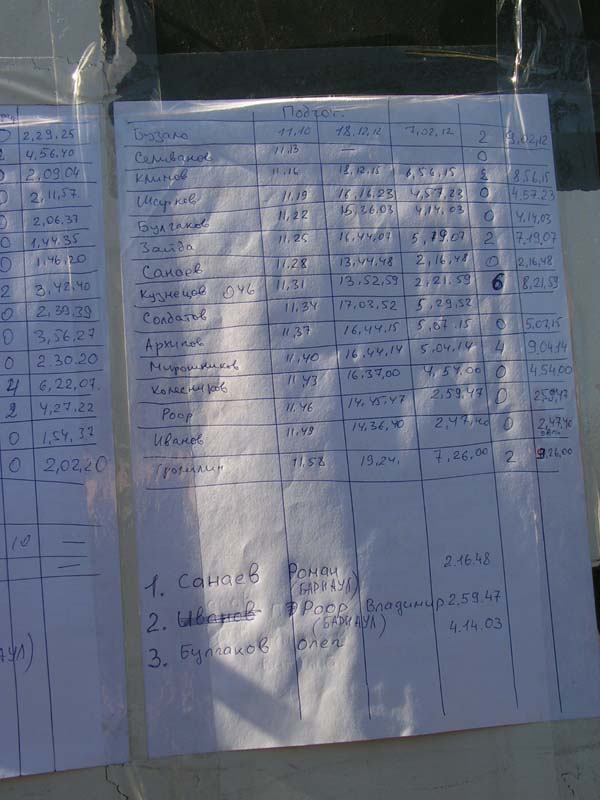 0 2,29,25
2 4,56,40
0 2,09,04
0 2,11,57.
0 2,06,37
0 1,44,35
0 1,46,20
2 3,42,40
0 2,39,39
0 3,56,27
0 2.30.20
4 6,22,07.
2 4,27,22
0 1,54,37
0 2,02,20
10 —
—
АУЛ)
Подгот.
Буззало 11,10 18,12,12 7,02,12 2 9,02,12
Селиванов 11,13 — 0
Климов 11,16 18,12,15 6,56,15 2 8,56,15
Шсурков 11,19 16,16,23 4,57,23 0 4.57.23
Булгаков 11,22 15,36,03 4,14,03 0 4,14,03
Зайба 11,25 16,44,07 5,19,07 2 7,19,07
Санаев 11,28 13,44,48 2,16,48 0 2,16,48
Кузнецов 046 11,31 13,52,59 2,21,59 6 8,21,59
Солдатов 11,34 17,03,52 5,29,52
Архипов 11,37 16,44,15 5,07,15 0 5,07,15
Мирошников 11,40 16,44,14 5,04,14 4 9,04,14
Колесников 11,43 16,37,00 4,54,00 0 4,54,00
Роор 11,46 14,45,47 2,59,47 0 2,59,47
Иванов 11,49 14,36,40 2,47,40 0 2,47,40
11,58 19,24, 7,26,00 2 9,26,00
1. Санаев Роман 2.16.48
(БАРНАУЛ)
2. Иванов Роор Владимир 2.59.47
(БАРНАУЛ)
3. Булгаков Олег 4.14.03